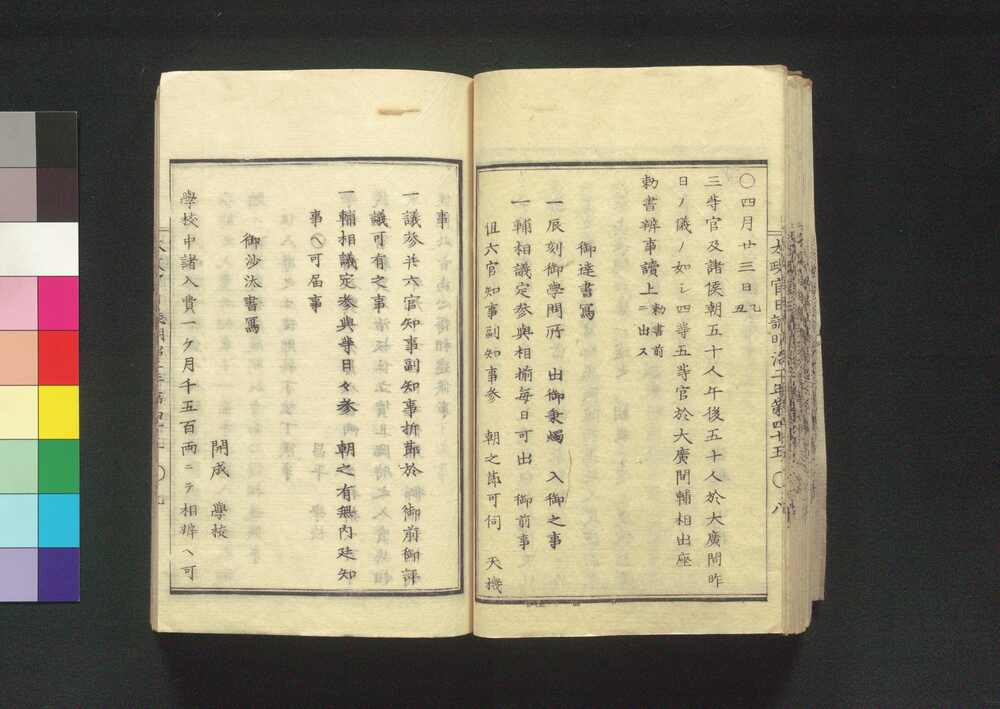 〇四月廿三日乙丑
三等官及諸侯朝五十人午後五十人於大廣間昨
日ノ儀ノ如シ四等五等官於大廣間輔相出座
勅書辨事讀上勅書前ニ出ス
御達書寫
一辰刻御學問所 出御秉燭 入御之事
一輔相議定參與相揃毎日可出 御前事
但六官知事副知事參 朝之節可伺 天機
事
一議參并六官知事副知事折節於御前御評
議可有之事
一輔相議定參與等日々參 朝之有無内廷知
事ヘ可届事
御沙汰書寫
開成 學校
學校中諸入費一ケ月千五百両ニテ相辨ヘ可
太政官日誌明治二年第四十五 〇八